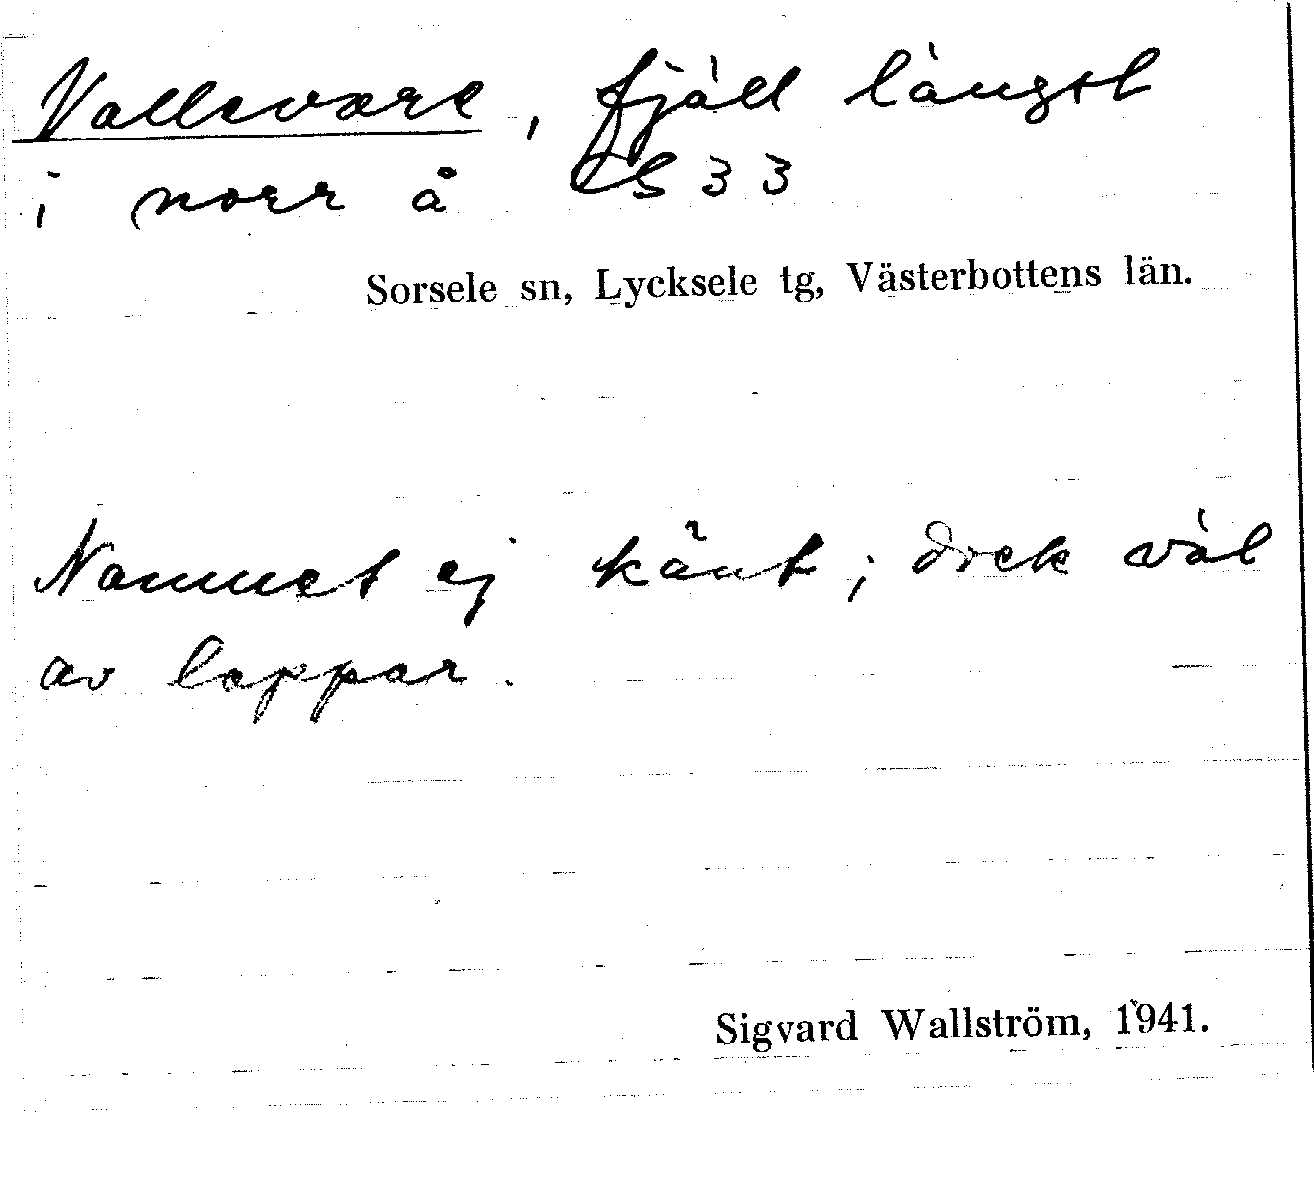 Vallevare, fjäll längst
i norr å CS 33
Sorsele sn, Lycksele tg, Västerbottens län.
Namnet ej känt; väl
av lappar.
Sigvard Wallström, 1941.